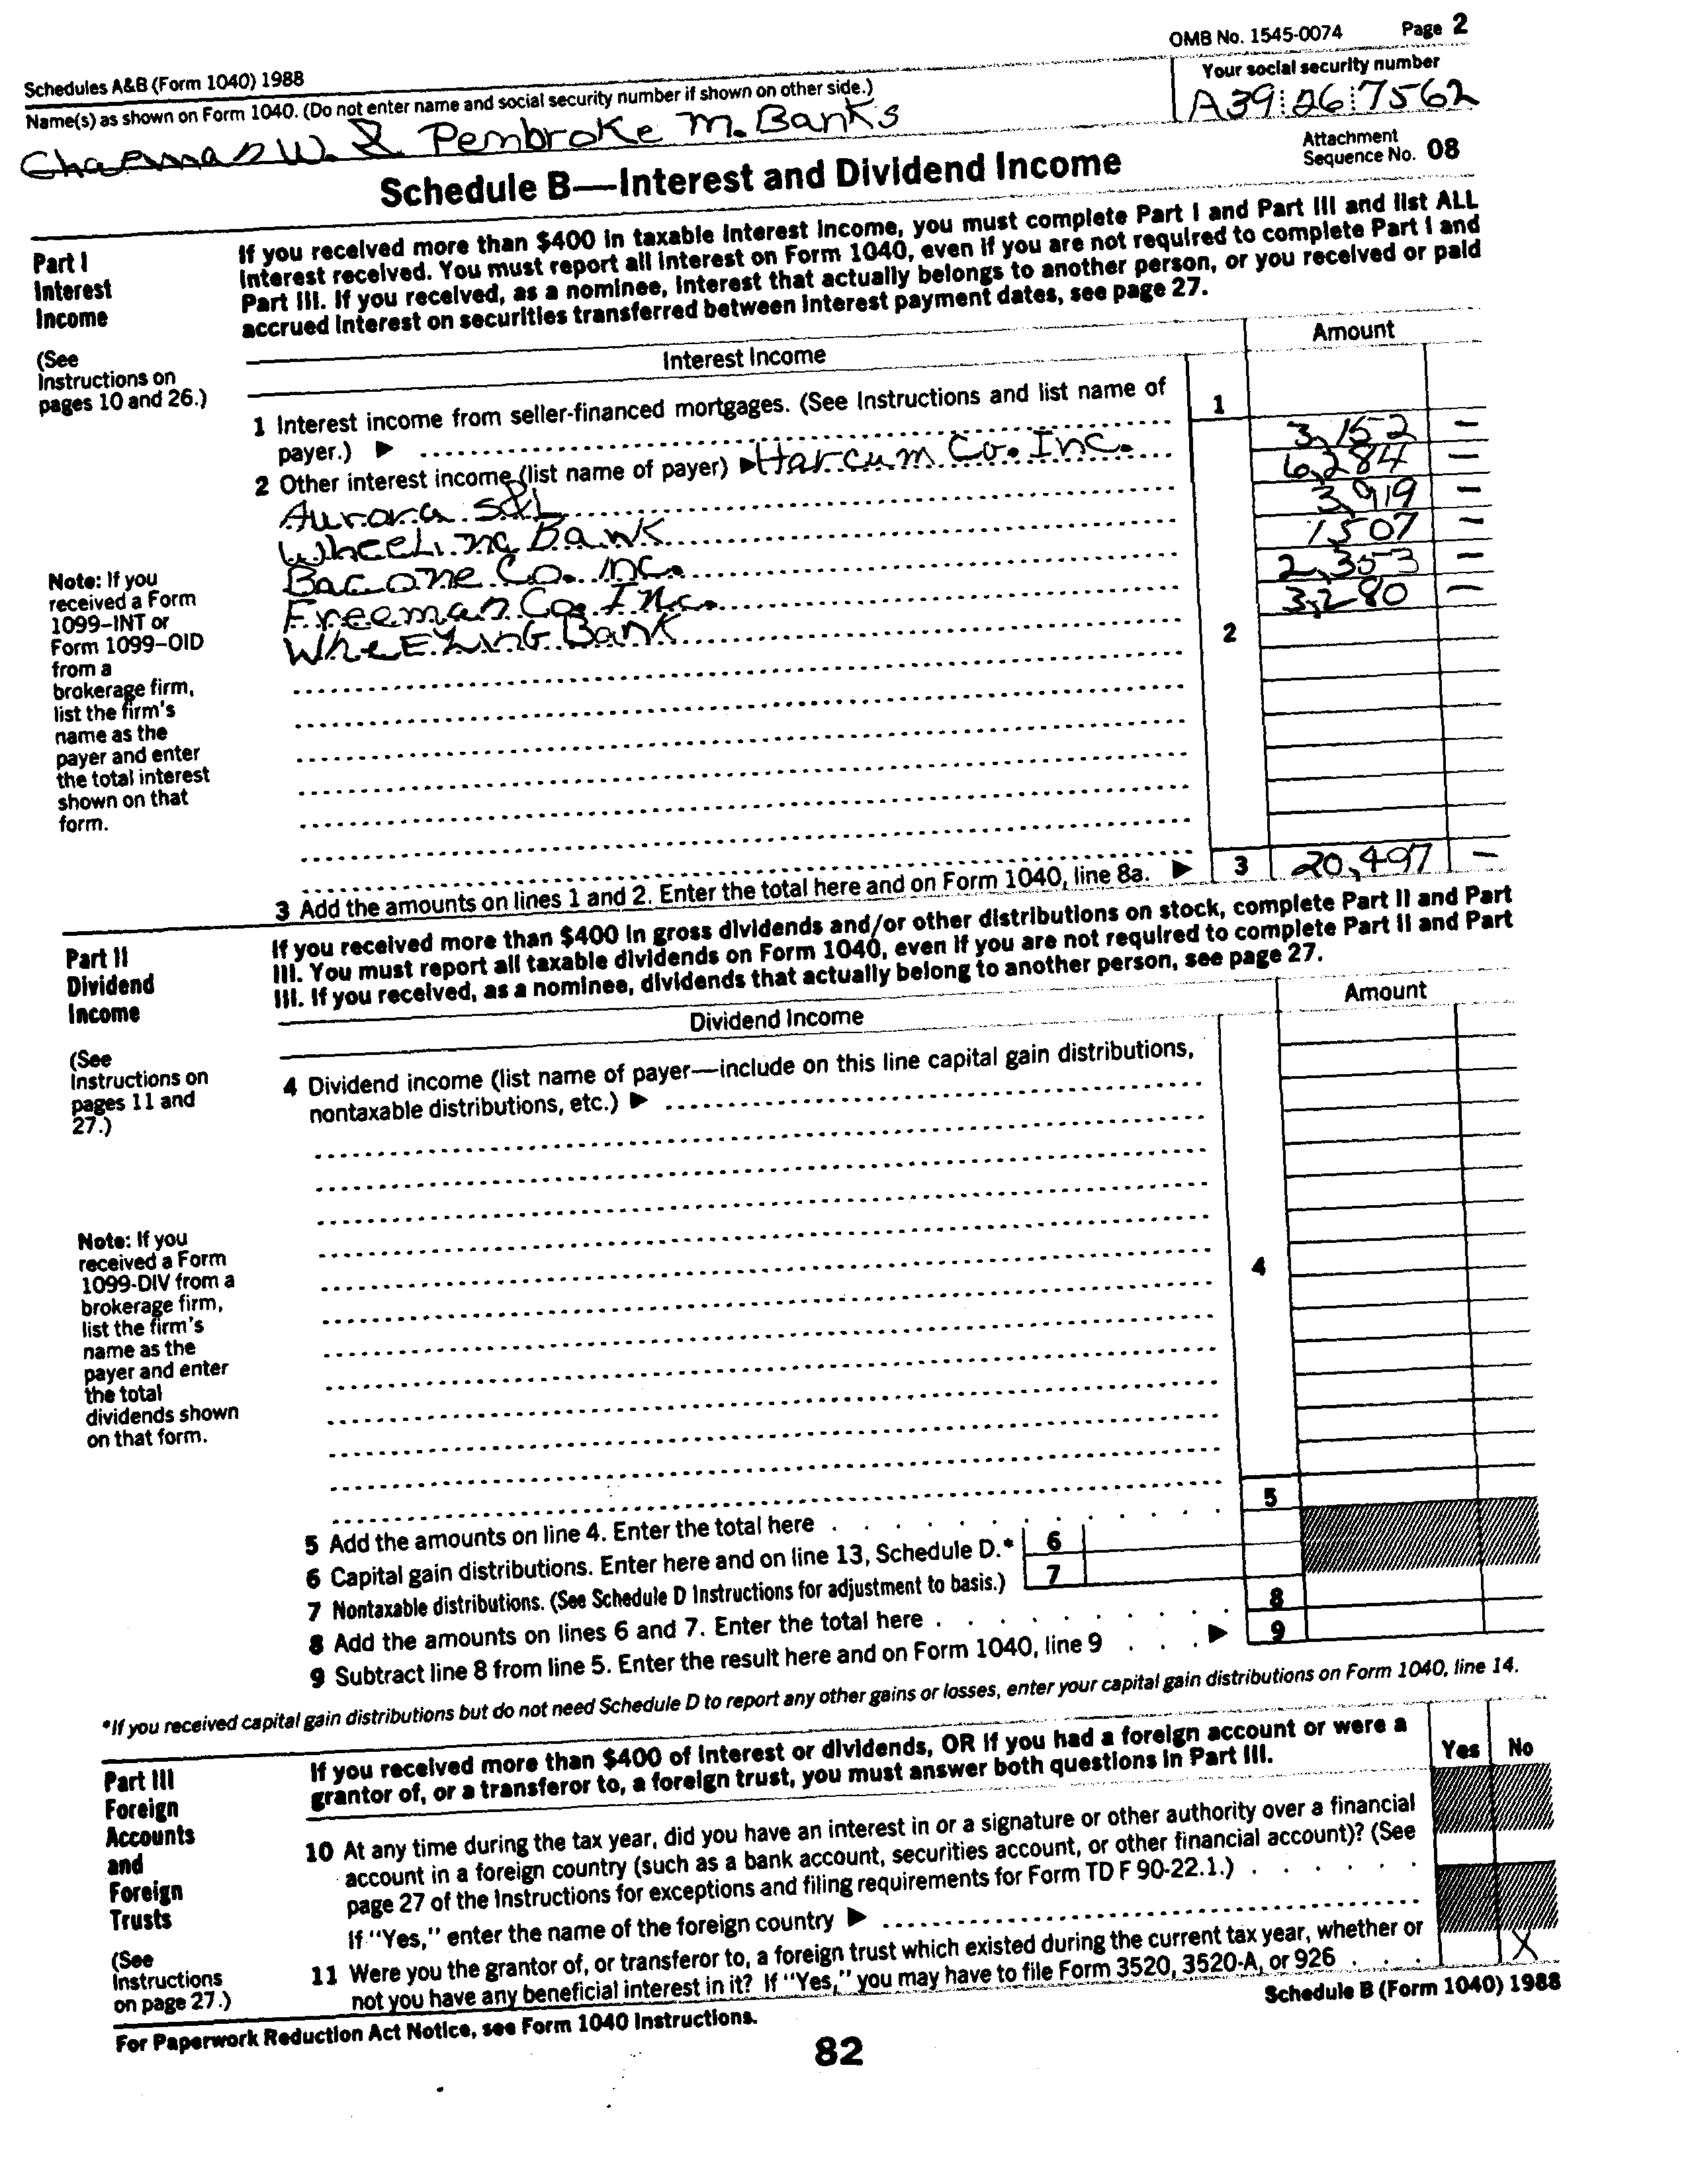 OMB No. 1545-0074 Page 2
Schedules A&B (Form 1040) 1988
Name(s) as shown on Form 1040. (Do not enter name and social security number if shown on other side.)
Your social security number
W. & Pembroke M. Banks
A39 26 7562
Attachment
Sequence No. 08
Schedule B—Interest and Dividend Income
Part I
Interest
Income
(See
Instructions on
pages 10 and 26.)
If you received more than $400 in taxable interest income, you must complete Part I and Part III and list ALL
interest received. You must report all interest on Form 1040, even if you are not required to complete Part I and
Part III. If you received, as a nominee, interest that actually belongs to another person, or you received or paid
accrued interest on securities transferred between interest payment dates, see page 27.
Interest Income Amount
1 Interest income from seller-financed mortgages. (See Instructions and list name of
payer.) ▶ 1
2 Other interest income (list name of payer) ▶ Harcum Co. Inc. 3,152 —
Aurora S&L 6,284 —
Wheeling Bank 3,919 —
Bacone Co. Inc. 1,507 —
Freeman Co. Inc. 2,353 —
WheELing Bank 3,280 —
2
Note: If you
received a Form
1099–INT or
Form 1099–OID
from a
brokerage firm,
list the firm's
name as the
payer and enter
the total interest
shown on that
form.
3 Add the amounts on lines 1 and 2. Enter the total here and on Form 1040, line 8a. ▶ 3 20,497 —
Part II
Dividend
Income
(See
Instructions on
pages 11 and
27.)
If you received more than $400 in gross dividends and/or other distributions on stock, complete Part II and Part
III. You must report all taxable dividends on Form 1040, even if you are not required to complete Part II and Part
III. If you received, as a nominee, dividends that actually belong to another person, see page 27.
Dividend Income Amount
4 Dividend income (list name of payer—include on this line capital gain distributions,
nontaxable distributions, etc.) ▶
4
Note: If you
received a Form
1099-DIV from a
brokerage firm,
list the firm's
name as the
payer and enter
the total
dividends shown
on that form.
5 Add the amounts on line 4. Enter the total here 5
6 Capital gain distributions. Enter here and on line 13, Schedule D.* 6
7 Nontaxable distributions. (See Schedule D Instructions for adjustment to basis.) 7
8 Add the amounts on lines 6 and 7. Enter the total here 8
9 Subtract line 8 from line 5. Enter the result here and on Form 1040, line 9 ▶ 9
*If you received capital gain distributions but do not need Schedule D to report any other gains or losses, enter your capital gain distributions on Form 1040, line 14.
Part III
Foreign
Accounts
and
Foreign
Trusts
(See
Instructions
on page 27.)
If you received more than $400 of interest or dividends, OR if you had a foreign account or were a
grantor of, or a transferor to, a foreign trust, you must answer both questions in Part III.
Yes No
10 At any time during the tax year, did you have an interest in or a signature or other authority over a financial
account in a foreign country (such as a bank account, securities account, or other financial account)? (See
page 27 of the Instructions for exceptions and filing requirements for Form TD F 90-22.1.)
If "Yes," enter the name of the foreign country ▶
11 Were you the grantor of, or transferor to, a foreign trust which existed during the current tax year, whether or
not you have any beneficial interest in it? If "Yes," you may have to file Form 3520, 3520-A, or 926 X
For Paperwork Reduction Act Notice, see Form 1040 Instructions.
Schedule B (Form 1040) 1988
82